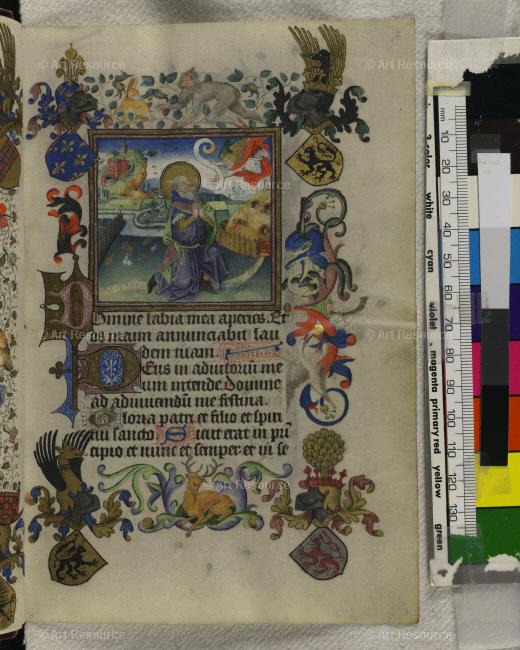 © Art Resource
© Art Resource
Domine labia mea aperies. Et
os meum annunciabit lau
dem tuam.
Deus in adiutoriū me
um intende Domine
ad adiuvendū me festina.
Gloria patri et filio et spiri
tui sancto Sicut erat in prī
cipio et nunc et semper et in se
© Art Resource
© Art Resource
mm 10 20 30 40 50 60 70 80 90 100 110 120 130
3 color
white
cyan
violet
magenta
primary red
yellow
green